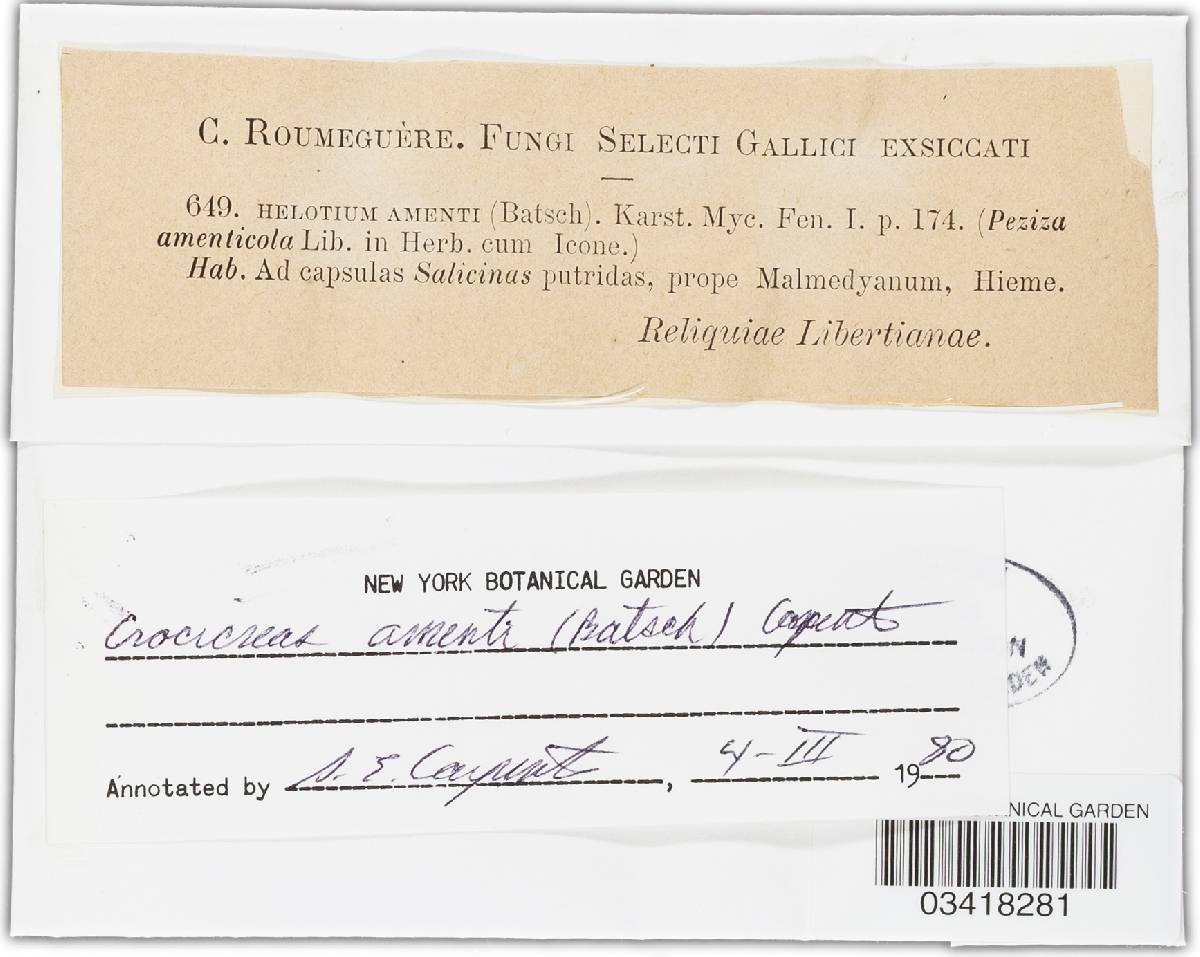 C. ROUMEGUÈRE. FUNGI SELECTI GALLICI EXSICCATI
649. HELOTIUM AMENTI (Batsch). Karst. Myc. Fen. I. p. 174. (Peziza
amenticola Lib. in Herb. cum Icone.)
Hab. Ad capsulas Salicinas putridas, prope Malmedyanum, Hieme.
Reliquiae Libertianae.
NEW YORK BOTANICAL GARDEN
Crocicreas amenti (Batsch) Carpent
Annotated by S. E. Carpent, 4-III 1980
N
DEN
NICAL GARDEN
03418281